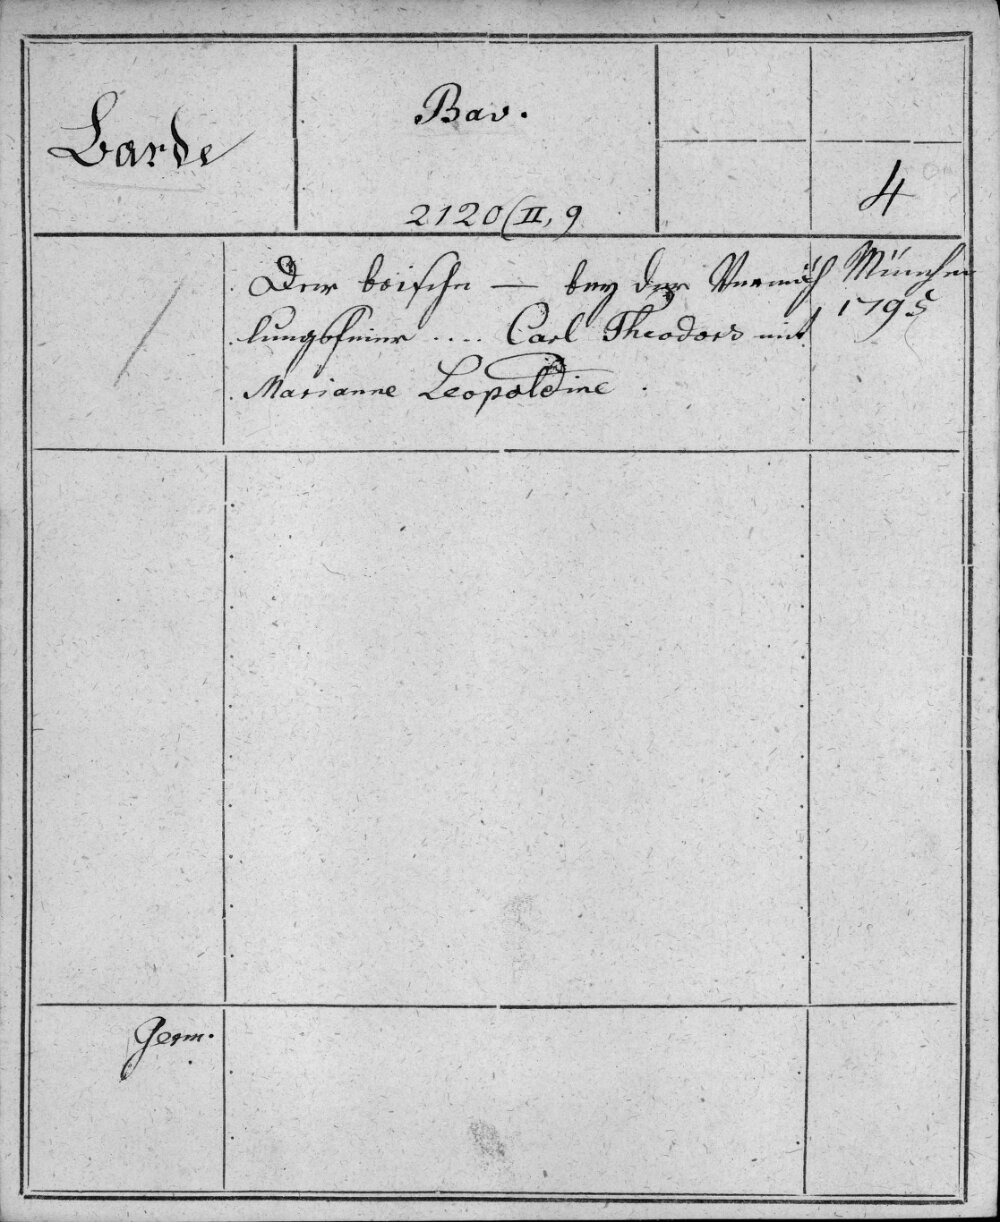 Barde
Bav.
2120(II, 9
4
Der boische — bey der Vermäh
lungsfeier .... Carl Theodors mit
Marianne Leopoldine
München
1795
Germ.